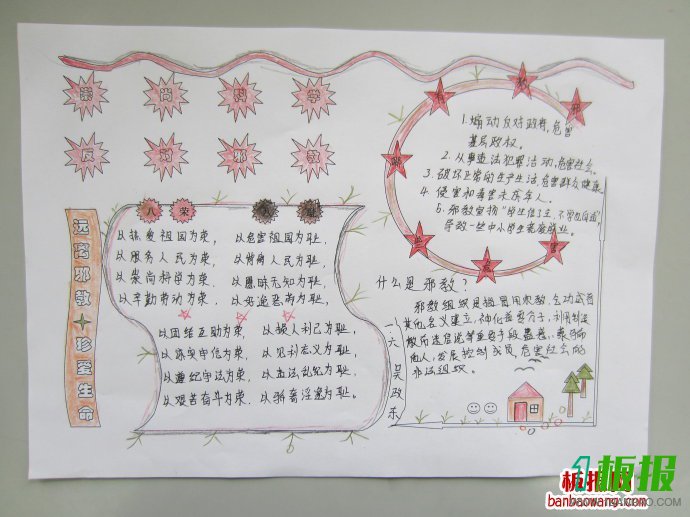 崇尚科学
反对邪教
远离邪教
珍爱生命
八荣
以热爱祖国为荣、以危害祖国为耻。
以服务人民为荣、以背离人民为耻。
以崇尚科学为荣、以愚昧无知为耻。
以辛勤劳动为荣、以好逸恶劳为耻。
以团结互助为荣、以损人利己为耻。
以诚实守信为荣、以见利忘义为耻。
以遵纪守法为荣、以违法乱纪为耻。
以艰苦奋斗为荣、以骄奢淫逸为耻。
1.煽动反对政府,危害
基层政权。
2.从事违法犯罪活动,危害社会。
3.破坏正常的生产生活,危害群众健康
4.侵害和毒害未成年人。
5.邪教宣扬"学生信了主,不学也自通"
导致一些中小学生荒废学业。
什么是邪教?
邪教组织是指冒用宗教、气功或者
其他名义建立,神化首要分子,利用制造
散布迷信邪说等手段蛊惑、蒙骗
他人,发展控制成员,危害社会的
非法组织。
一六
板报网
banbaowang.com
板报